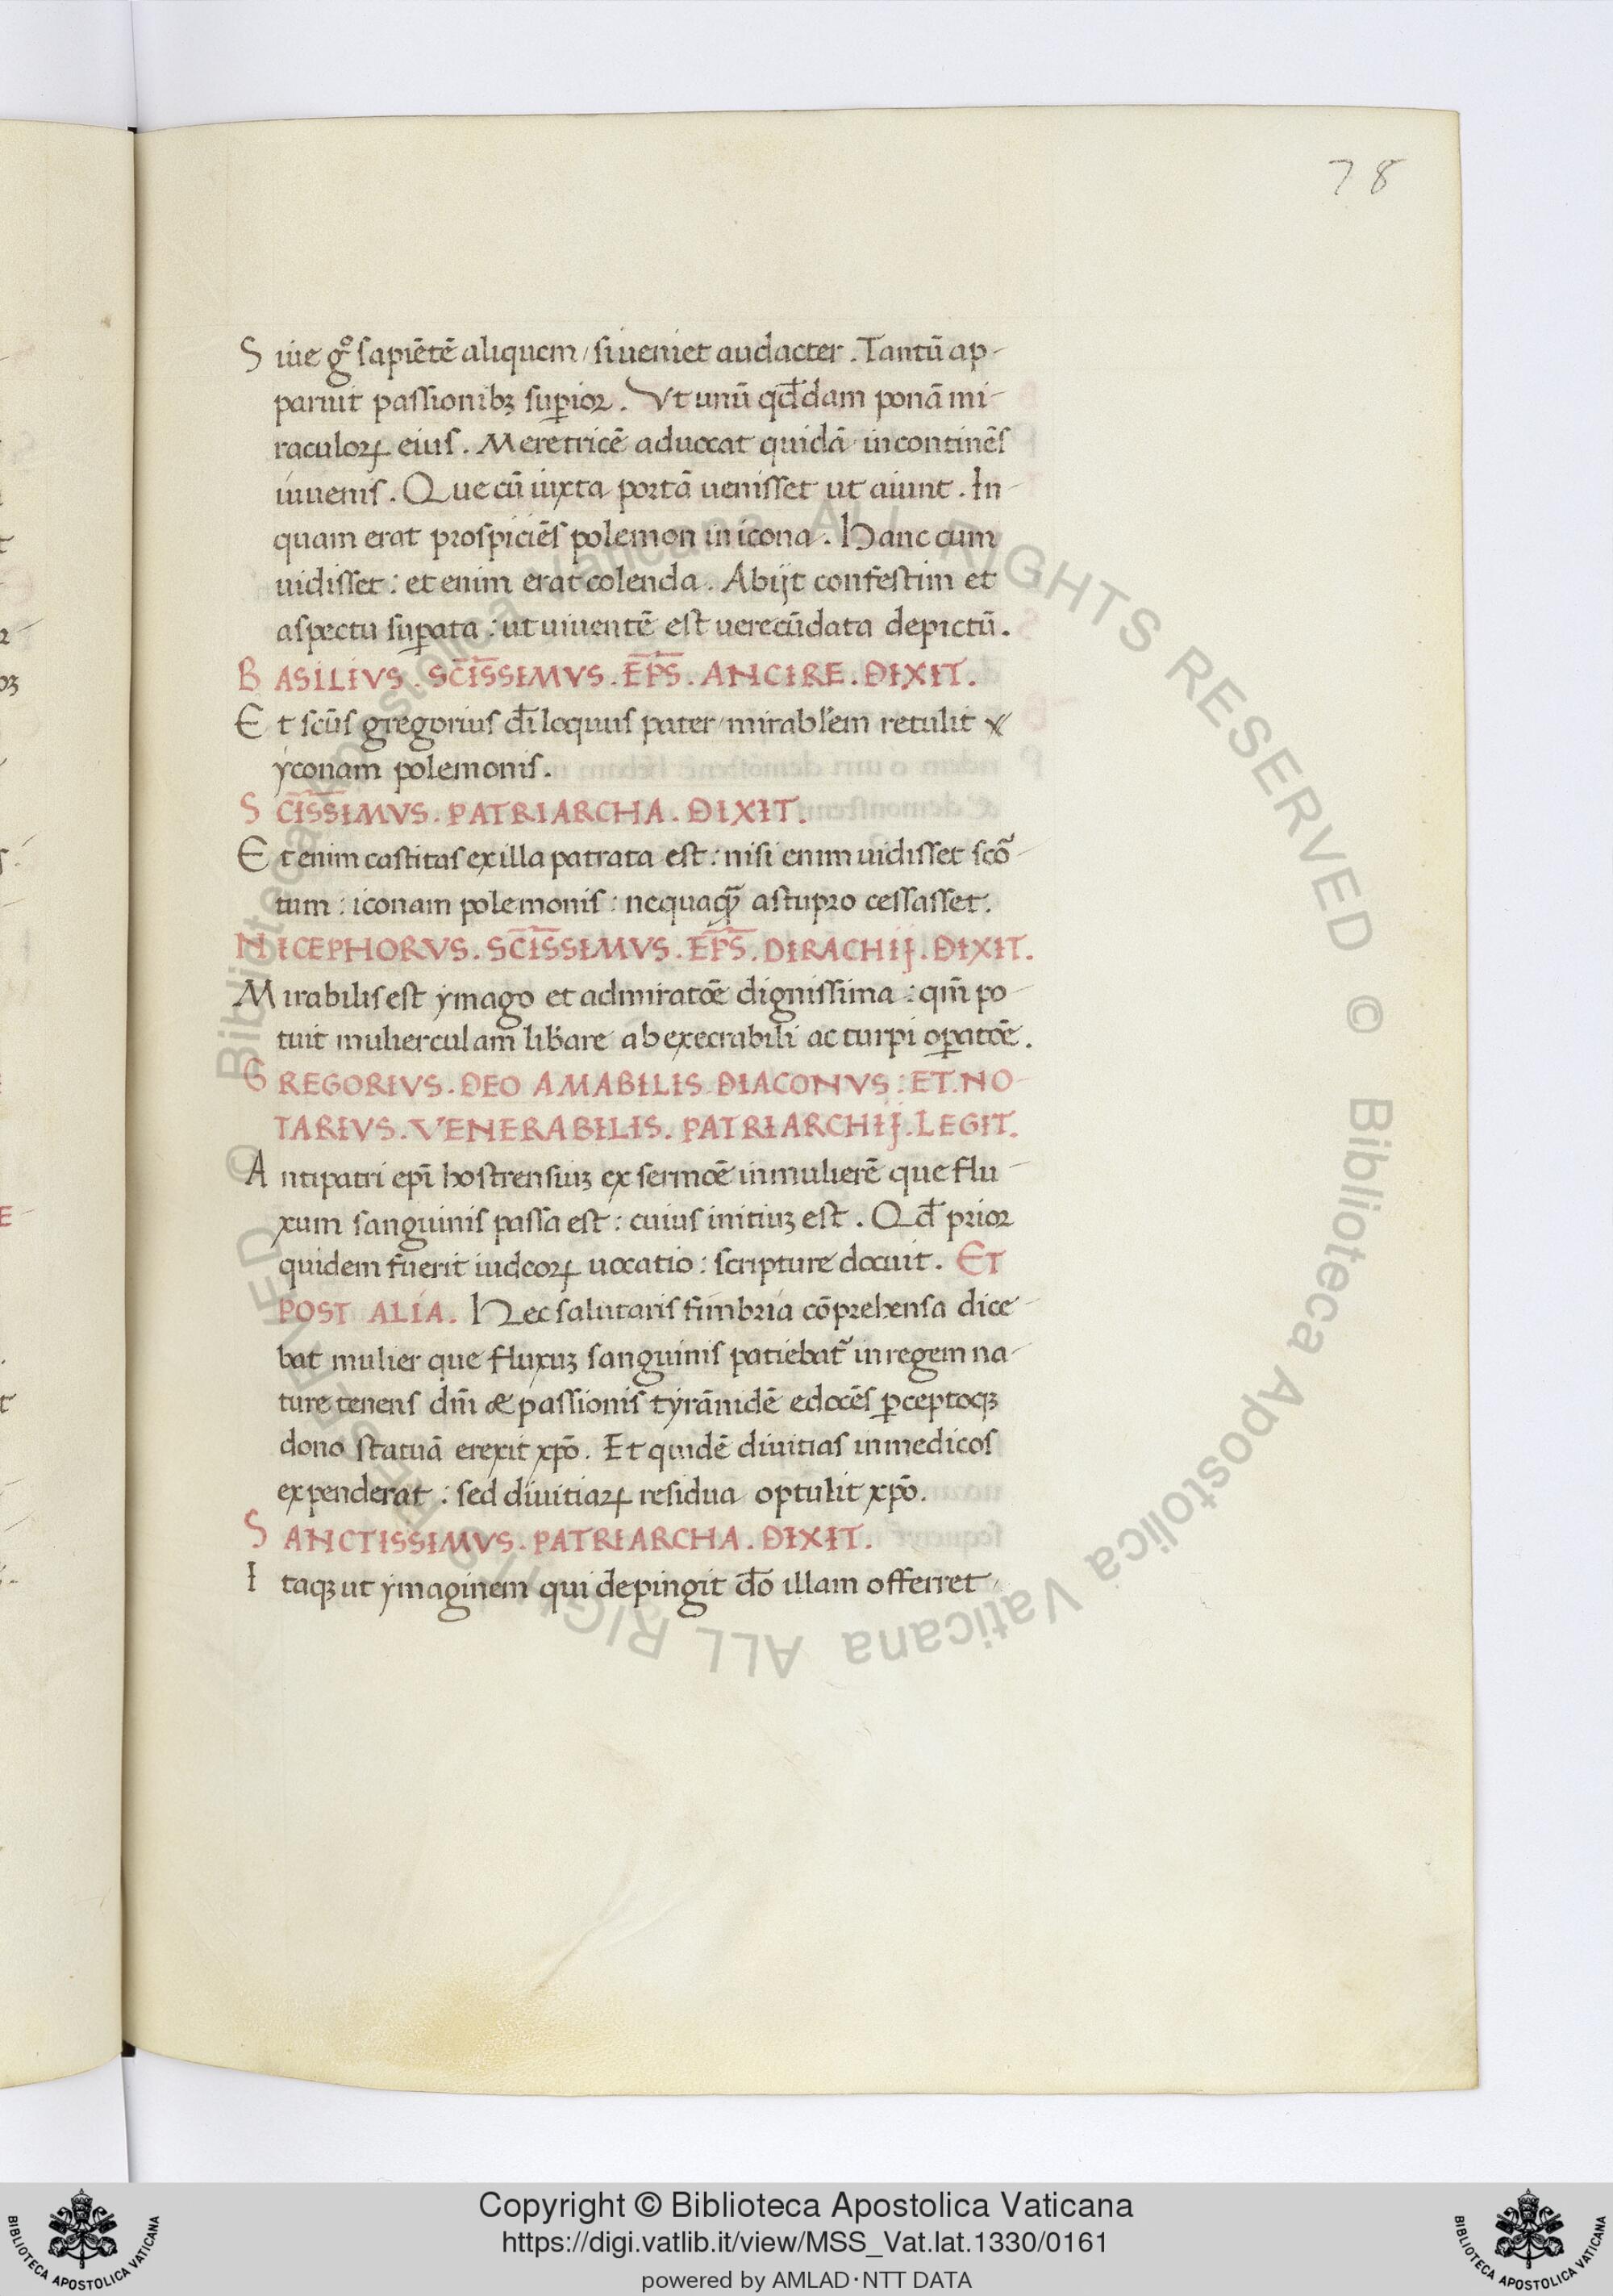 78
Siue gͦ sapiētē aliquem / si ueniet audacter. Tantū ap-
paruit passionibꝫ suꝑior. Vt unū qd̄dam ponā mi-
raculoꝝ eius. Meretricē aduocat quidā incontinēs
iuuenis. Que cū iuxta portā uenisset ut aiunt. In
quam erat prospiciēs polemon in icona. Hanc cum
uidisset: et enim erat colenda. Abijt confestim et
aspectu suꝑata: ut uiuentē est uerecūdata depictū.
BASILIVS. SC̄ISSIMVS. EP̄S. ANCIRE. DIXIT.
Et sc̄us gregorius di̅loquus pater mirabl̅em retulit
yconam polemonis.
SC̄ISSIMVS. PATRIARCHA. DIXIT.
Et enim castitas ex illa patrata est: nisi enim uidisset scō-
tum: iconam polemonis: nequaqꝫ̄ a stupro cessasset.
NICEPHORVS. SC̄ISSIMVS. EP̄S. DIRACHIJ. DIXIT.
Mirabilis est ymago et admiratōe dignissima: qm̄ po-
tuit mulierculam lib̄are ab execrabili ac turpi oꝑatōe.
GREGORIVS. DEO AMABILIS DIACONVS: ET. NO-
TARIVS. VENERABILIS. PATRIARCHIJ. LEGIT.
Antipatri epī bostrensiuꝫ ex sermōe in mulierē que flu-
xum sanguinis passa est: cuius initiuꝫ est. Qd̄ prior
quidem fuerit iudeoꝝ uocatio: scripture docuit. ET
POST ALIA. Hec salutaris fimbria cōprehensa dice-
bat mulier que fluxuꝫ sanguinis patiebat᷑ in regem na-
ture tenens dn̄i & passionis tyrānidē edocēs ꝑceptoqꝫ
dono statuā erexit xp̄o. Et quidē diuitias in medicos
expenderat: sed diuitiaꝝ residua optulit xp̄o.
SANCTISSIMVS. PATRIARCHA. DIXIT.
Itaqꝫ ut ymaginem qui depingit dō illam offerret
© Biblioteca Apostolica Vaticana ALL RIGHTS RESERVED © Biblioteca Apostolica Vaticana ALL RIGHTS RESERVED
Copyright © Biblioteca Apostolica Vaticana
https://digi.vatlib.it/view/MSS_Vat.lat.1330/0161
powered by AMLAD·NTT DATA
BIBLIOTECA APOSTOLICA VATICANA
BIBLIOTECA APOSTOLICA VATICANA